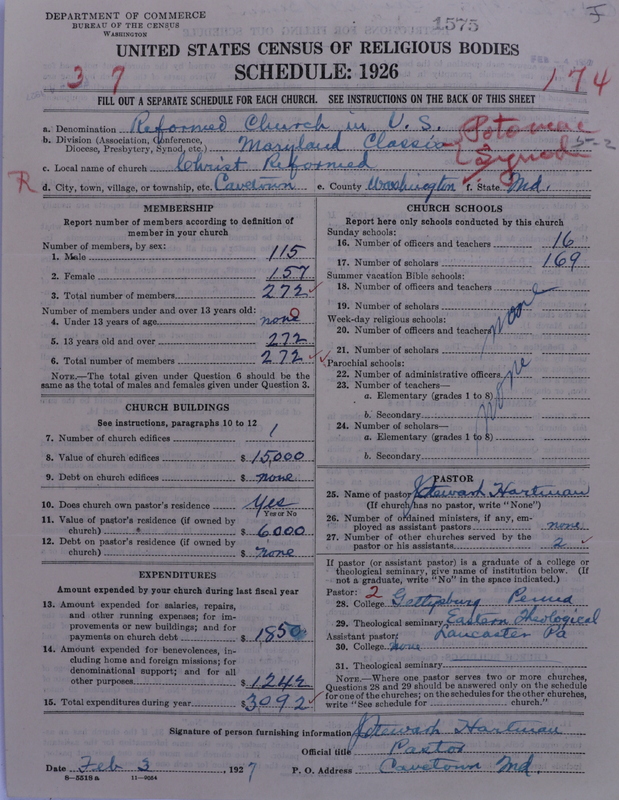 DEPARTMENT OF COMMERCE
BUREAU OF THE CENSUS
WASHINGTON
1575
UNITED STATES CENSUS OF RELIGIOUS BODIES
SCHEDULE: 1926
37
174
FILL OUT A SEPARATE SCHEDULE FOR EACH CHURCH. SEE INSTRUCTIONS ON THE BACK OF THIS SHEET
a. Denomination Reformed Church in U. S.
b. Division (Association, Conference, Diocese, Presbytery, Synod, etc.) Maryland Classis
Potomac Synod
c. Local name of church Christ Reformed
R d. City, town, village, or township, etc. Cavetown e. County Washington f. State Md.
MEMBERSHIP
Report number of members according to definition of
member in your church
Number of members, by sex:
1. Male 115
2. Female 157
3. Total number of members 272
Number of members under and over 13 years old:
4. Under 13 years of age none 0
5. 13 years old and over 272
6. Total number of members 272
NOTE.—The total given under Question 6 should be the
same as the total of males and females given under Question 3.
CHURCH BUILDINGS
See instructions, paragraphs 10 to 12
7. Number of church edifices 1
8. Value of church edifices $ 15,000
9. Debt on church edifices $ none
10. Does church own pastor's residence Yes
Yes or No
11. Value of pastor's residence (if owned by
church) $ 6000
12. Debt on pastor's residence (if owned by
church) $ none
EXPENDITURES
Amount expended by your church during last fiscal year
13. Amount expended for salaries, repairs,
and other running expenses; for im-
provements or new buildings; and for
payments on church debt $ 1850
14. Amount expended for benevolences, in-
cluding home and foreign missions; for
denominational support; and for all
other purposes $ 1242
15. Total expenditures during year $ 3092
CHURCH SCHOOLS
Report here only schools conducted by this church
Sunday schools:
16. Number of officers and teachers 16
17. Number of scholars 169
Summer vacation Bible schools:
18. Number of officers and teachers
19. Number of scholars
none
Week-day religious schools:
20. Number of officers and teachers
21. Number of scholars
Parochial schools:
22. Number of administrative officers
23. Number of teachers—
a. Elementary (grades 1 to 8)
none
b. Secondary
24. Number of scholars—
a. Elementary (grades 1 to 8)
b. Secondary
PASTOR
25. Name of pastor J Stewart Hartman
(If church has no pastor, write "None")
26. Number of ordained ministers, if any, em-
ployed as assistant pastors none
27. Number of other churches served by the
pastor or his assistants 2
If pastor (or assistant pastor) is a graduate of a college or
theological seminary, give name of institution below. (If
not a graduate, write "No" in the space indicated.)
Pastor: 2
28. College Gettysburg Penna
29. Theological seminary Eastern Theological
Assistant pastor: Lancaster Pa
30. College none
31. Theological seminary
NOTE.—Where one pastor serves two or more churches,
Questions 28 and 29 should be answered only on the schedule
for one of the churches; on the schedules for the other churches,
write "See schedule for church."
Signature of person furnishing information J Stewart Hartman
Official title Pastor
Date Feb 3, 1927 P. O. Address Cavetown Md.
8—5518a 11—9064